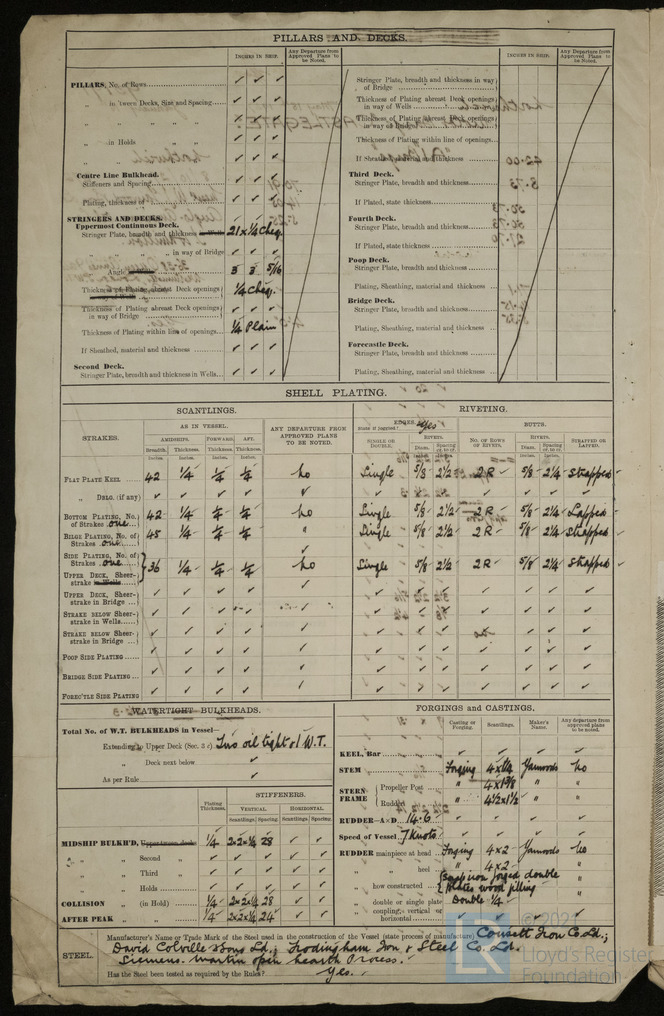 PILLARS AND DECKS.
INCHES IN SHIP. Any Departure from Approved Plans to be Noted. INCHES IN SHIP. Any Departure from Approved Plans to be Noted.
PILLARS, No. of Rows ✓ ✓ ✓
„ in 'tween Decks, Size and Spacing ✓ ✓ ✓
„ „ „ ✓ ✓ ✓
„ in Holds ✓ ✓ ✓
„ „ ✓ ✓ ✓
Centre Line Bulkhead.
Stiffeners and Spacing ✓ ✓ ✓
Plating, thickness of ✓ ✓ ✓
STRINGERS AND DECKS.
Uppermost Continuous Deck.
Stringer Plate, breadth and thickness in Wells 21 x 1/4 Cheq.
„ „ „ in way of Bridge ✓ ✓ ✓
Angle 3 3 5/16
Thickness of Plating abreast Deck openings in way of Wells 1/4 Cheq.
Thickness of Plating abreast Deck openings in way of Bridge ✓ ✓ ✓
Thickness of Plating within line of openings 1/4 Plain
If Sheathed, material and thickness ✓ ✓ ✓
Second Deck.
Stringer Plate, breadth and thickness in Wells ✓ ✓ ✓
Stringer Plate, breadth and thickness in way of Bridge
Thickness of Plating abreast Deck openings in way of Wells
Thickness of Plating abreast Deck openings in way of Bridge
Thickness of Plating within line of openings
If Sheathed, material and thickness
Third Deck.
Stringer Plate, breadth and thickness
If Plated, state thickness
Fourth Deck.
Stringer Plate, breadth and thickness
If Plated, state thickness
Poop Deck.
Stringer Plate, breadth and thickness
Plating, Sheathing, material and thickness
Bridge Deck.
Stringer Plate, breadth and thickness
Plating, Sheathing, material and thickness
Forecastle Deck.
Stringer Plate, breadth and thickness
Plating, Sheathing, material and thickness
SHELL PLATING.
SCANTLINGS. RIVETING.
STRAKES. AS IN VESSEL. ANY DEPARTURE FROM APPROVED PLANS TO BE NOTED. EDGES. Yes BUTTS.
State if joggled?
AMIDSHIPS. FORWARD. AFT. SINGLE OR DOUBLE. RIVETS. No. OF ROWS OF RIVETS. RIVETS. STRAPPED OR LAPPED.
Breadth. Thickness. Thickness. Thickness. Diam. Spacing cr. to cr. Diam. Spacing cr. to cr.
Inches. Inches. Inches. Inches. Inches. Inches. Inches. Inches.
FLAT PLATE KEEL 42 1/4 1/4 1/4 No Single 5/8 2 1/2 2R 5/8 2 1/4 Strapped
„ DBLG. (if any) ✓ ✓ ✓ ✓ ✓ ✓ ✓ ✓ ✓ ✓ ✓ ✓
BOTTOM PLATING, No. of Strakes one 42 1/4 1/4 1/4 No Single 5/8 2 1/2 2R 5/8 2 1/4 Lapped
BILGE PLATING, No. of Strakes one 45 1/4 1/4 1/4 „ Single 5/8 2 1/2 2R 5/8 2 1/4 Strapped
SIDE PLATING, No. of Strakes one 36 1/4 1/4 1/4 No Single 5/8 2 1/2 2R 5/8 2 1/4 Strapped
UPPER DECK, Sheer-strake in Wells
UPPER DECK, Sheer-strake in Bridge
STRAKE BELOW Sheer-strake in Wells
STRAKE BELOW Sheer-strake in Bridge
POOP SIDE PLATING
BRIDGE SIDE PLATING
FOREC'TLE SIDE PLATING
WATERTIGHT BULKHEADS.
Total No. of W.T. BULKHEADS in Vessel—
Extending to Upper Deck (Sec. 3 c) Two oil tight & 1 W.T.
„ Deck next below ✓
As per Rule ✓
Plating Thickness. STIFFENERS.
VERTICAL. HORIZONTAL.
Scantlings. Spacing. Scantlings. Spacing.
MIDSHIP BULKH'D, Uppertween decks 1/4 2x2x1/4 28 ✓ ✓
„ „ Second „ ✓ ✓ ✓ ✓ ✓
„ „ Third „ ✓ ✓ ✓ ✓ ✓
„ „ Holds ✓ ✓ ✓ ✓ ✓
COLLISION „ (in Hold) 1/4 2x2x1/4 28 ✓ ✓
AFTER PEAK „ „ 1/4 2x2x1/4 24 ✓ ✓
FORGINGS and CASTINGS.
Casting or Forging. Scantlings. Maker's Name. Any departure from approved plans to be noted.
KEEL, Bar ✓ ✓ ✓ ✓
STEM Forging Yarwoods No
STERN FRAME { Propeller Post „ 4 x 1 3/8 „ „
Rudder „ 4 1/2 x 1 1/2 „ „
RUDDER—A×D 14.6
Speed of Vessel 7 Knots
RUDDER mainpiece at head Forging 4 x 2 Yarwoods No
„ „ heel „ 4 x 2 „ „
„ how constructed { Scrap iron forged double plates wood filling
„ double or single plate Double 1/4
„ coupling, vertical or horizontal ✓ ✓ ✓
STEEL. Manufacturer's Name or Trade Mark of the Steel used in the construction of the Vessel (state process of manufacture) Consett Iron Co. Ld.;
David Colville & Sons Ld.; Frodingham Iron & Steel Co. Ld.
Siemens. Martin open hearth Process.
Has the Steel been tested as required by the Rules? Yes.
© 2021
LR
Lloyd's Register
Foundation